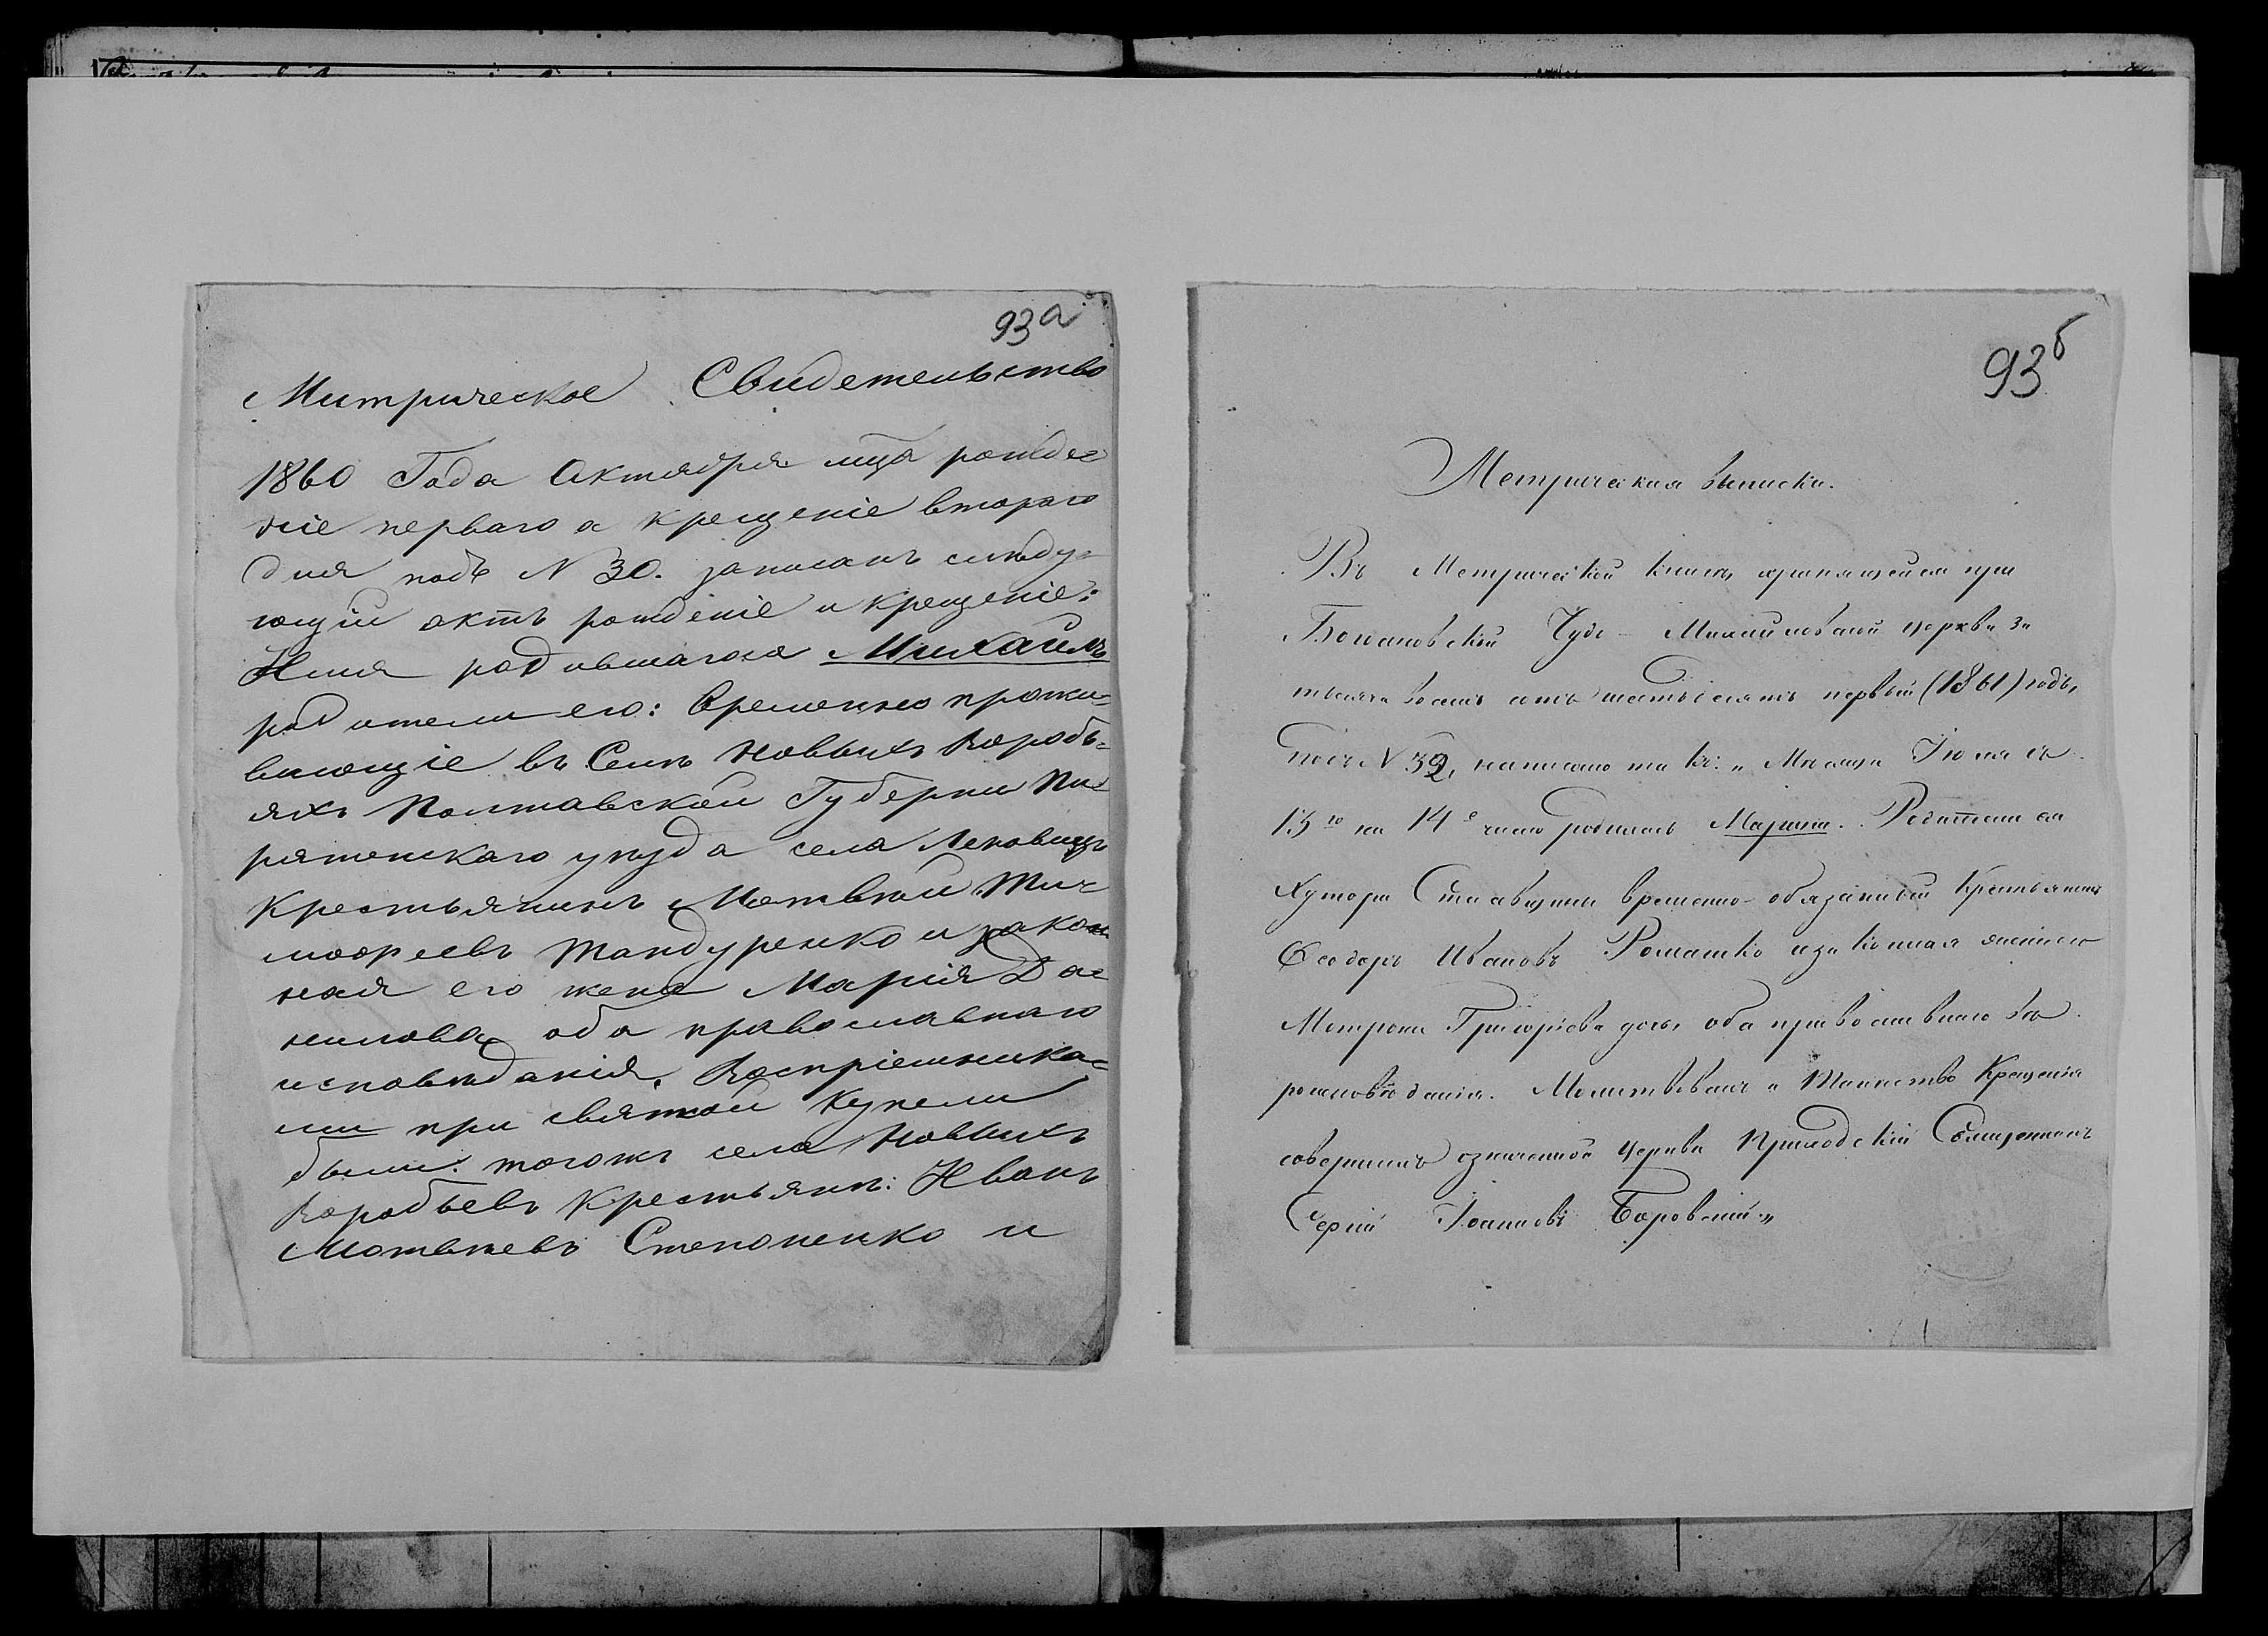 93а
Митрическое Свидетельство
1860 Года Октября мца рожде=
ніе перваго а крещеніе втораго
дня подъ N 30. записанъ слѣду=
ющій актъ рожденіе и крещеніе:
Имя родившагося Михаилъ
родители его: Временно прожи=
вающіе въ Селѣ Новыхъ Воробь=
яхъ Полтавской Губерніи Пи=
рятинскаго уѣзда села
Крестьянинъ Матвѣй Тим=
офеевъ Тандуренко и закон
ная его жена Марія Да=
нилова, оба православнаго
исповѣданія. Воспріемника=
ми при святой Купели
были: тогожъ села Новыхъ
Воробьевъ Крестьяне: Иванъ
Матвѣевъ Степаненко и
93б
Метрическая выписка.
Въ Метрической книгѣ, хранящейся при
Чудо-Михайловской церкви за
тысяча восемь сотъ шестьдесятъ первый (1861) годъ,
подъ N 32, написано такъ: „Мѣсяца Іюля съ
13го на 14е число родилась Марина. Родители ея
Хутора временно-обязанный Крестьянинъ
Ѳеодоръ Ивановъ Ромашко и законная жена его
Матрона Григорьева дочь, оба православнаго вѣ
роисповѣданія. Молитвовалъ и Таинство Крещенія
совершилъ означенной Церкви Приходскій Священникъ
Сергій Іоанновъ Боровскій„